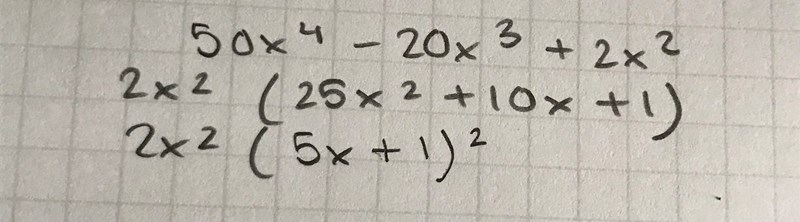 50x⁴ - 20x³ + 2x²
2x² (25x² + 10x + 1)
2x² (5x + 1)²